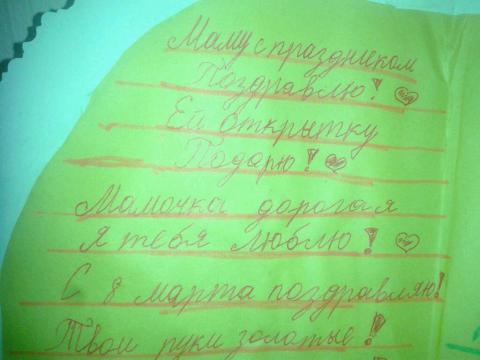 Маму с праздником
Поздравлю!
Ей открытку
Подарю!
Мамочка дорогая
Я тебя люблю!
С 8 марта поздравляю!
Твои руки золотые!